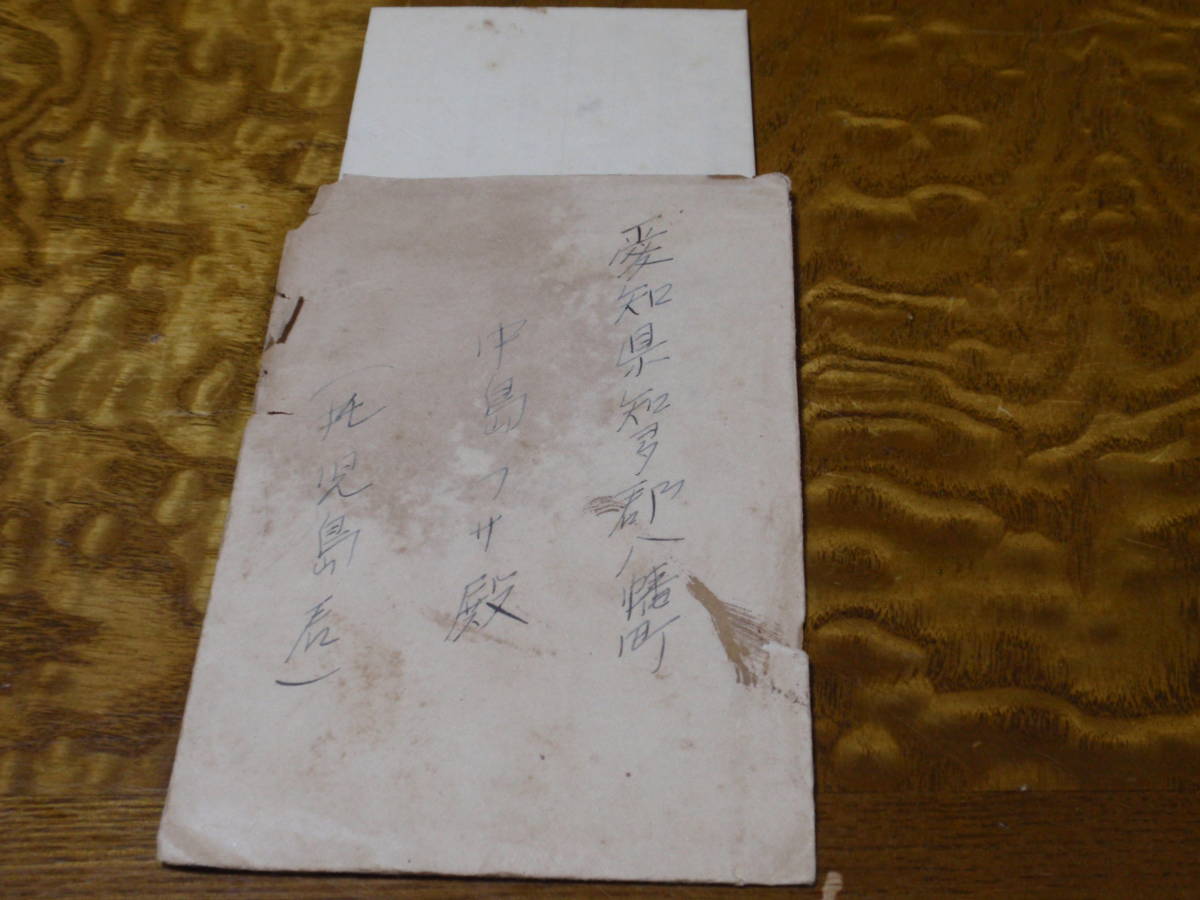 愛知県知多郡八幡町
中島フサ殿
(托児島君)